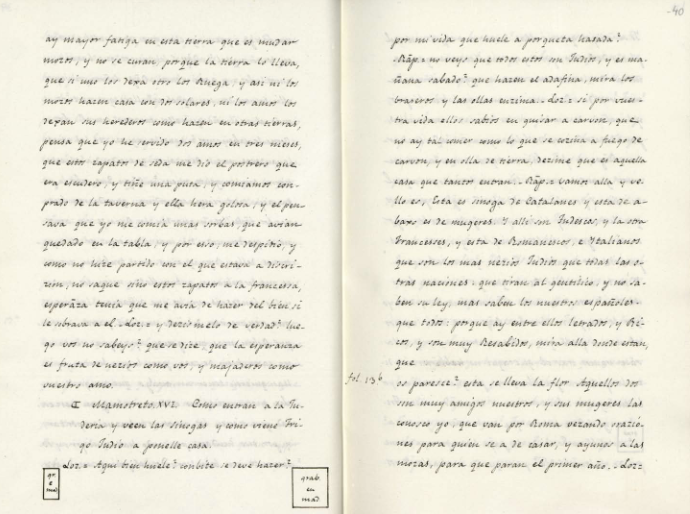 ay mayor fatiga en esta tierra que es mudar
mozos, y no se curan, porque la tierra lo lleva,
que si uno los dexa otro los Ruega, y asi ni los
mozos hazen casa con dos solares, ni los amos los
dexan sus herederos como hazen en otras tierras,
pensa que yo he servido dos amos en tres meses,
que estos zapatos de seda me dio el postrero que
era escudero, y tiñe una puta, y comiamos con-
prado de la taverna y ella hera golosa, y el pen-
sava que yo me comia unas sorbas, que avian
quedado en la tabla, y por esso, me despitio, y
como no hize partido con el que estava a discri-
zion, no saque sino estos zapatos a la francessa,
esperāza tenia que me avia de hazer del bien si
le sobrava a el. Loz= y dezismelo de verdad? lue-
go vos no sabeys? que se dize, que la esperanza
es fruta de nezios como vos, y majaderos como
vuestro amo.
Mamotreto. XVI. Como entran a la Ju-
deria y veen las sinogas y como viene Tri-
go Judio a ponelle casa.
Loz= Aqui bien huele? conbite se deve hazer?
grab.
en
mad
40
por mi vida que huele a porqueta hasada?
Rāp= no veys que todos estos son Judios, y es ma-
ñana sabado? que hazen el adafina, mira los
braseros y las ollas enzima. Loz= si por vues-
tra vida ellos sabios en guisar a carvon, que
no ay tal comer como lo que se cozina a fuego de
carvon, y en olla de tierra, dezime que es aquella
casa que tantos entran. Rāp= vamos alla y ve-
llo es, Esta es sinoga de Catalanes y esta de a-
baxo es de mugeres. Y alli son Tudescos, y la otra
Franceses, y esta de Romanescos, e Italianos
que son los mas nezios Judios que todas las o-
tras naciones. que tiran al gentilicio, y no sa-
ben su ley, mas saben los nuestros españoles.
que todos: porque ay entre ellos letrados, y Ri-
cos, y son muy Resabidos, mira alla donde estan,
que
fol. 13b
os paresce? esta se lleva la flor Aquellos dos
son muy amigos nuestros, y sus mugeres las
conosco yo, que van por Roma rezando orazio-
nes para quien se a de casar, y ayunos a las
mozas, para que paran el primer año. Loz=